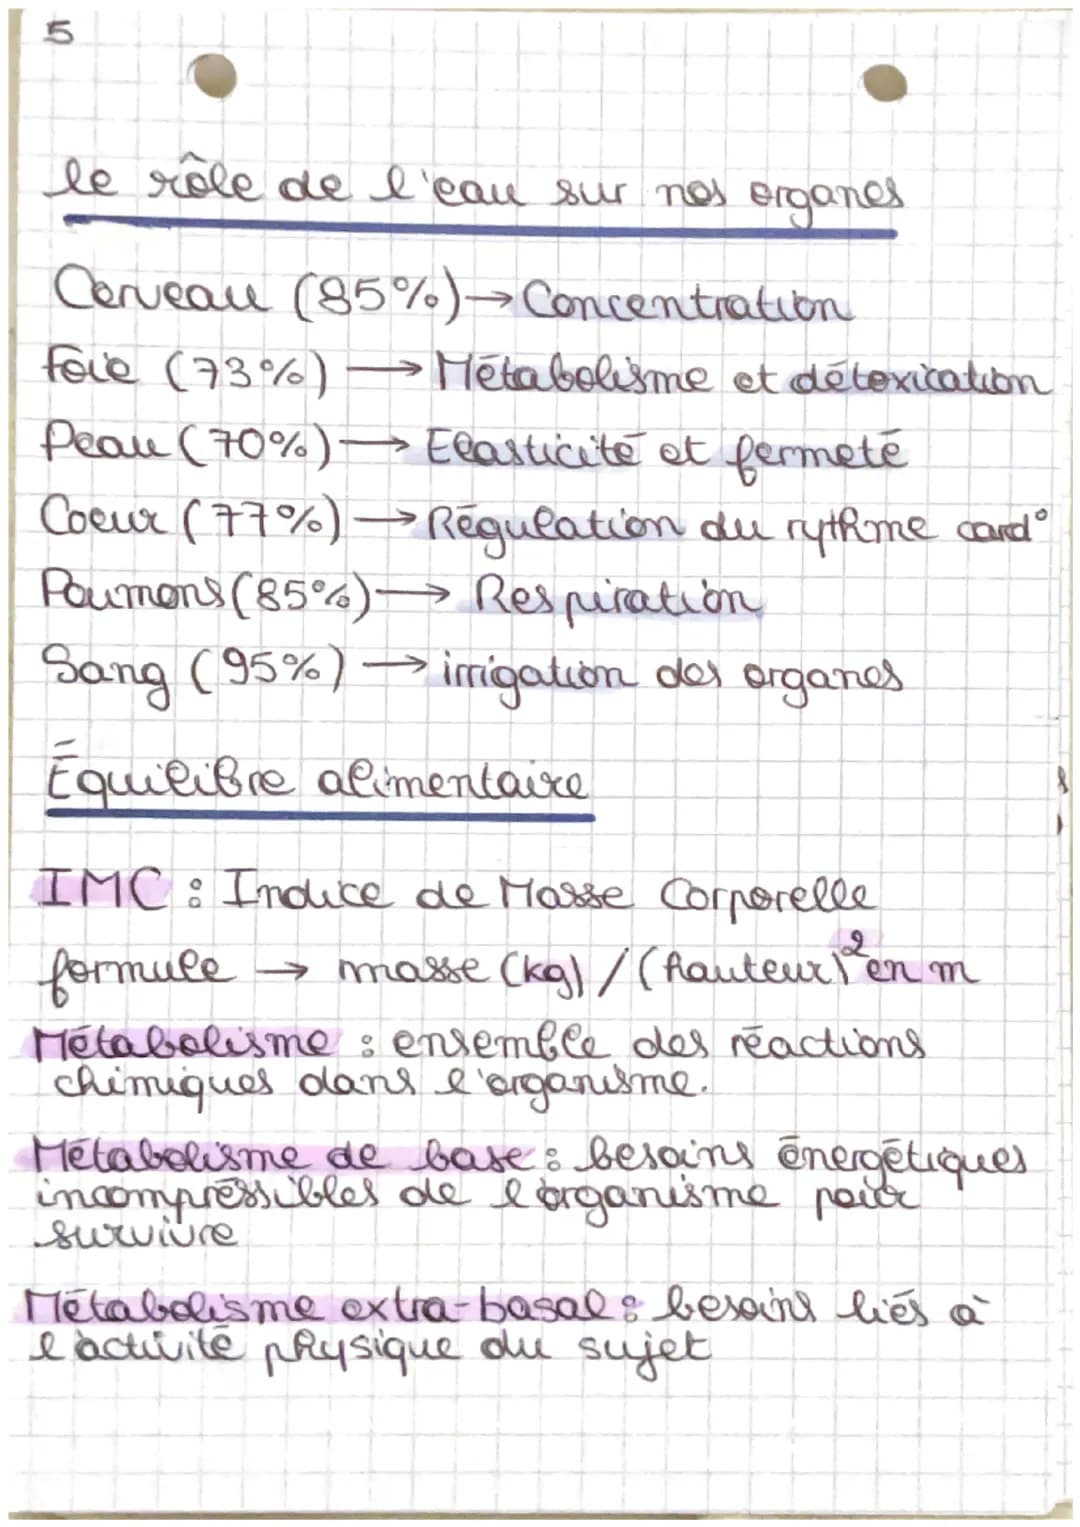 5
le rôle de l'eau sur nos organes
Cerveau (85%) → Concentration
foie (73%) → Métabolisme et détoxication
Peau (70%) → Elasticité et fermeté
Coeur (77%) → Régulation du rythme card°
Poumons (85%) → Respiration
Sang (95%) → irrigation des organes
Équilibre alimentaire
IMC : Indice de Masse Corporelle
formule → masse (kg) / (hauteur)² en m
Métabolisme : ensemble des réactions
chimiques dans l'organisme.
Métabolisme de base : besoins énergétiques
incompréssibles de l'organisme pour
survivre
Métabolisme extra-basal : besoins liés à
l'activité physique du sujet